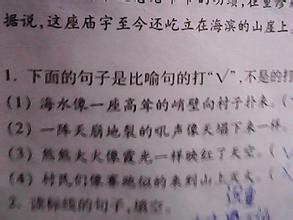 据说，这座庙宇至今还屹立在海滨的山崖上
1. 下面的句子是比喻句的打"√"，不是的打
(1) 海水像一座高耸的峭壁向村子扑来。(
(2) 一阵天崩地裂的吼声像天塌下来一样。
(3) 熊熊大火像霞光一样映红了天空。(
(4) 村民们像赛跑似的来到山上
2. 读标线的句子，填空。